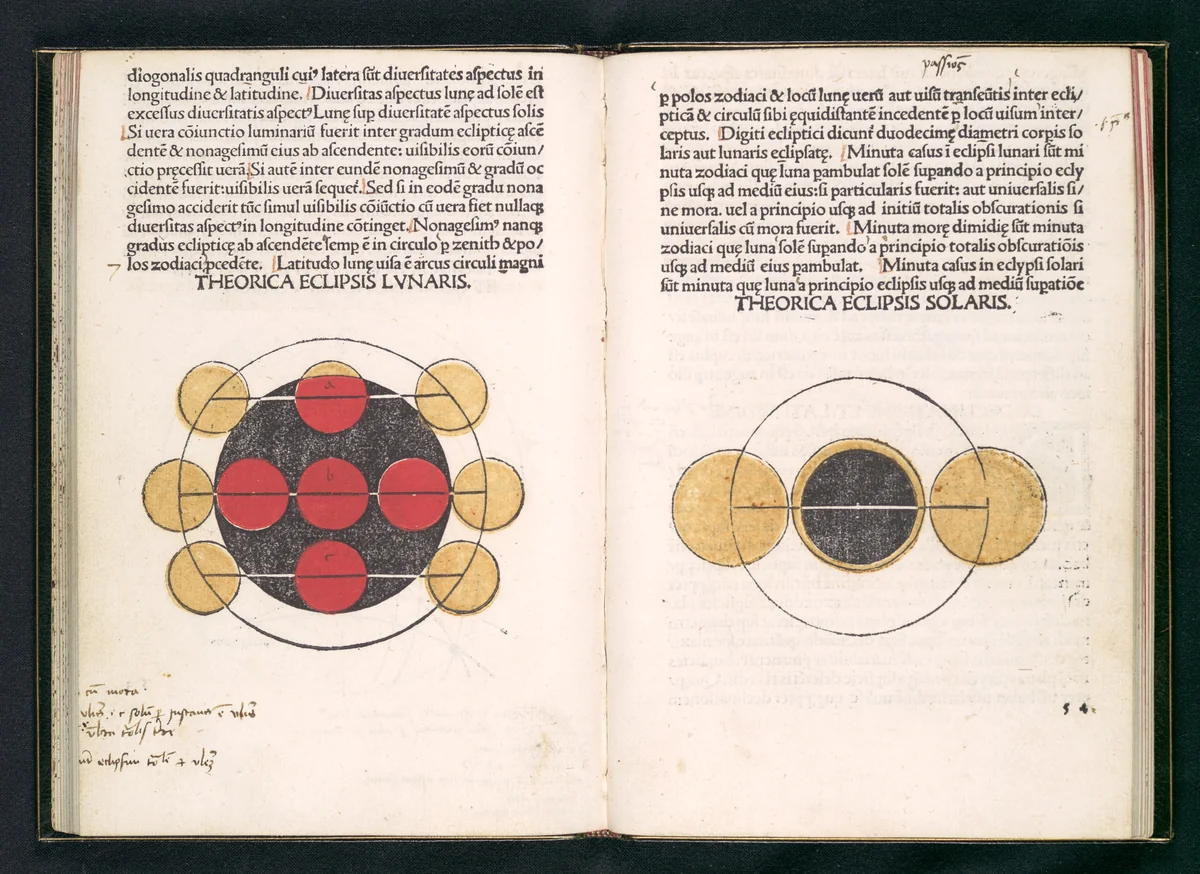 diogonalis quadranguli cuiꝰ latera sũt diuersitates aspectus in
longitudine & latitudine. Diuersitas aspectus lunę ad solẽ est
excessus diuersitatis aspectꝰ Lunę suꝑ diuersitatẽ aspectus solis
Si uera cõiunctio luminariũ fuerit inter gradum eclipticę ascẽ
dentẽ & nonagesimũ eius ab ascendente: uisibilis eorũ cõiun/
ctio pręcessit uerã. Si autẽ inter eundẽ nonagesimũ & gradũ oc
cidentẽ fuerit: uisibilis uerã sequet̃. Sed si in eodẽ gradu nona
gesimo acciderit tũc simul uisibilis cõiũctio cũ uera fiet nullaqꝫ
diuersitas aspectꝰ in longitudine cõtinget. Nonagesimꝰ nanqꝫ
gradus eclipticę ab ascendẽte semꝑ ẽ in circulo ꝑ zenith & po/
los zodiaci ꝓcedẽte. Latitudo lunę uisa ẽ arcus circuli magni
THEORICA ECLIPSIS LVNARIS.
a
b
c
cũ mora
passiõ
ꝑ polos zodiaci & locũ lunę uerũ aut uisũ transeũtis inter ecli/
pticã & circulũ sibi ęquidistantẽ incedentẽ ꝑ locũ uisum inter/
ceptus. Digiti ecliptici dicunt̃ duodecimę diametri corꝑis so
laris aut lunaris eclipsatę. Minuta casus ĩ eclipsi lunari sũt mi
nuta zodiaci quę luna ꝑambulat solẽ suꝑando a principio ecly
psis usqꝫ ad mediũ eius: si particularis fuerit: aut uniuersalis si/
ne mora. uel a principio usqꝫ ad initiũ totalis obscurationis si
uniuersalis cũ mora fuerit. Minuta morę dimidię sũt minuta
zodiaci quę luna solẽ suꝑando a principio totalis obscuratiõis
usqꝫ ad mediũ eius ꝑambulat. Minuta casus in eclypsi solari
sũt minuta quę luna a principio eclipsis usqꝫ ad mediũ suꝑatiõe
THEORICA ECLIPSIS SOLARIS.
54